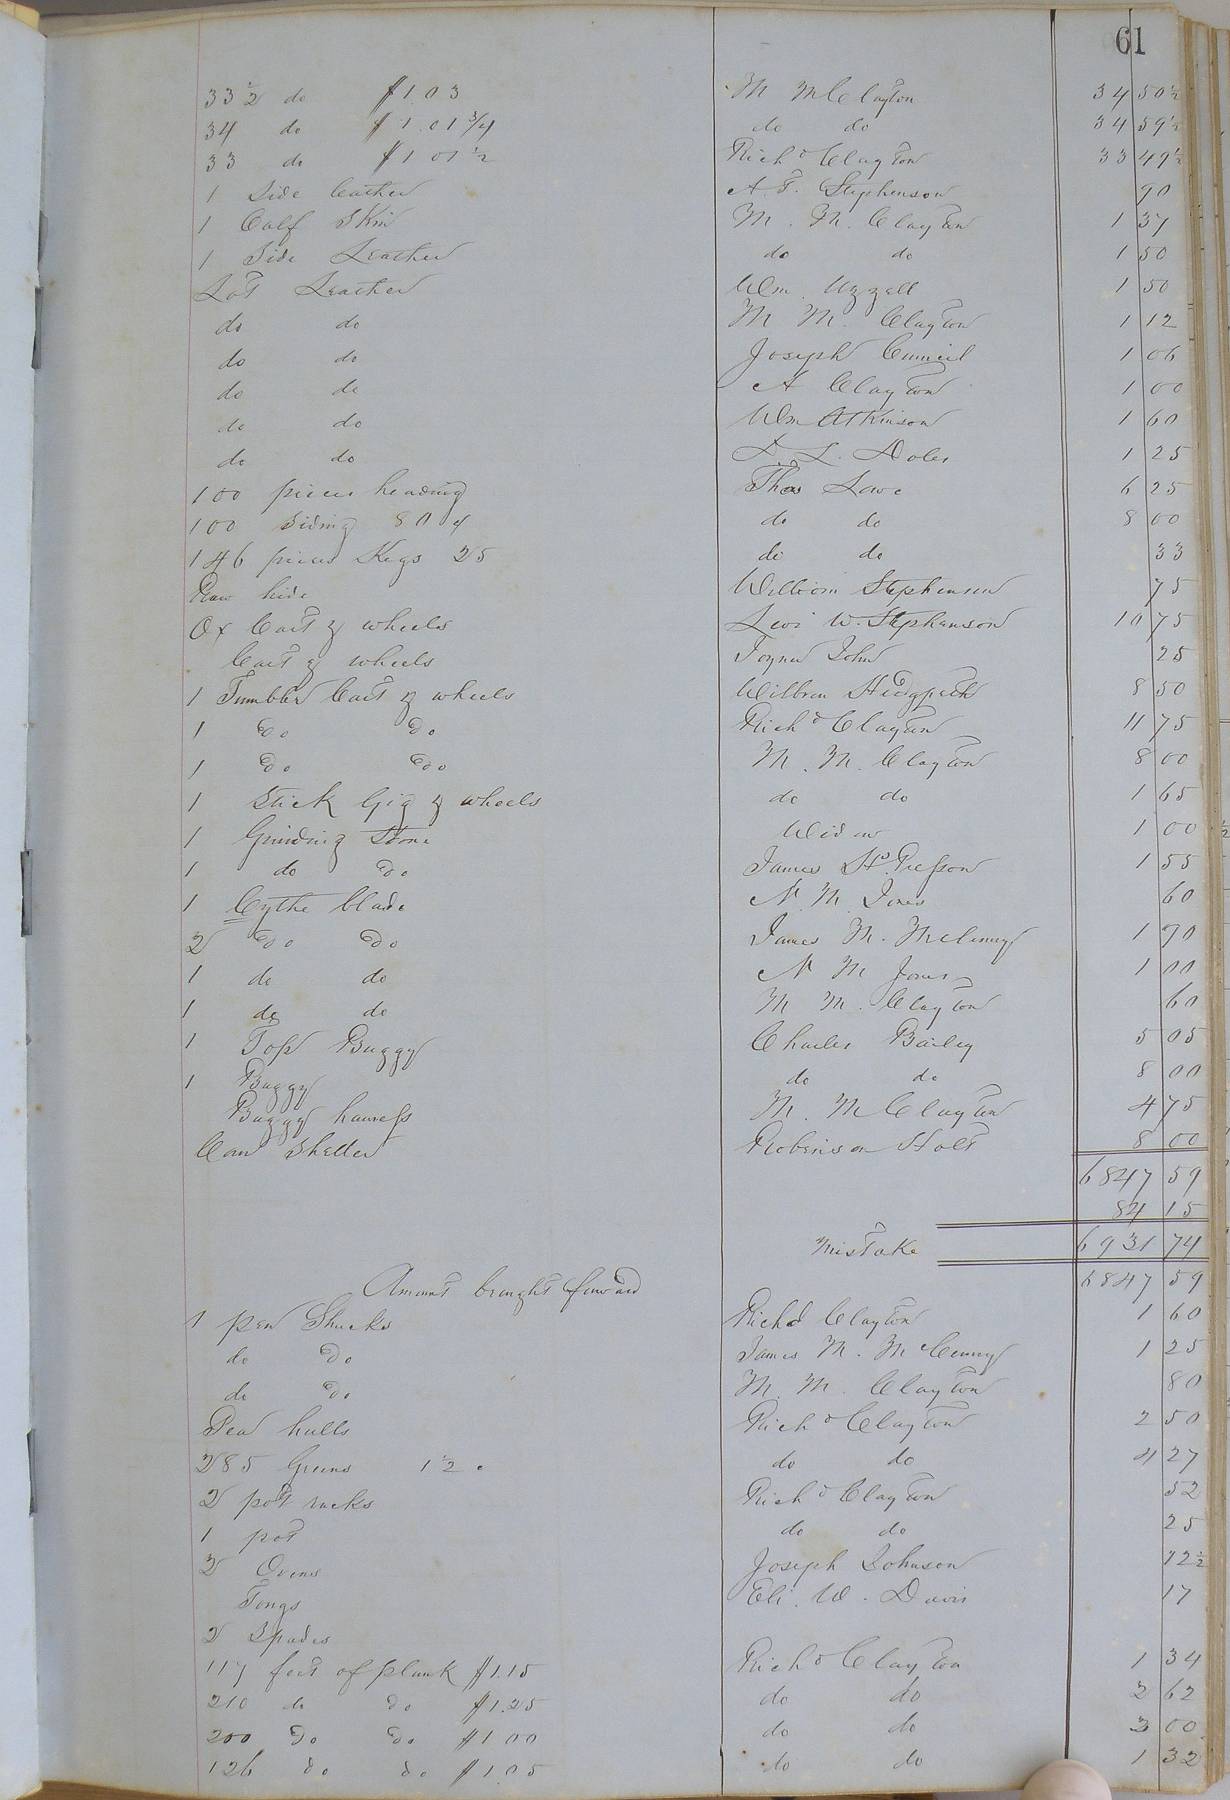 61
33½ do $1 03 M M Clayton 34 50½
34 do $1.01¾ do do 34 59½
33 do $1 01½ Richd Clayton 33 49½
1 Side Leather A. T. Stephenson 90
1 Calf Skin M. M. Clayton 1 37
1 Side Leather do do 1 50
Lot Leather Wm Uzzell 1 50
do do M M. Clayton 1 12
do do Joseph Council 1 06
do do A Clayton 1 00
do do Wm Atkinson 1 60
do do D. L. Doles 1 25
100 pieces heading Thos Lowe 6 25
100 Siding 80 do do 8 00
146 pieces Kegs 25 do do 33
Raw hide William Stephenson 75
Ox Cart & wheels Levi W. Stephenson 10 75
Cart & wheels Joyner John 25
1 Tumbler Cart & wheels 8 50
1 Do Do Richd Clayton 11 75
1 Do Do M. M. Clayton 8 00
1 Stick Gig & wheels do do 1 65
1 Grinding Stone Widow 1 00
1 do Do James 1 55
1 Cythe blade N. M. Jones 60
2 Do Do James M. McCenny 1 90
1 do do N M Jones 1 00
1 do do M M. Clayton 60
1 Top Buggy Charles Bailey 5 05
1 Buggy do do 8 00
Buggy harness M. M Clayton 4 75
Corn Sheller Robinson Holt 8 00
6847 59
84 15
Mistake 6931 74
Amount brought forward 6847 59
1 pen Shucks Richd Clayton 1 60
do Do James M. McCenny 1 25
do Do M. M. Clayton 80
Pea hulls Richd Clayton 2 50
285 Greens 1½ c do do 4 27
2 pot racks Richd Clayton 52
1 pot do do 25
2 Ovens Joseph Johnson 12½
Tongs Eli. W. Davis 17
2 Spades
117 feet of plank $1.15 Richd Clayton 1 34
210 do Do $1.25 do do 2 62
200 Do Do $1 00 do do 2 00
126 Do do $1.05 do do 1 32